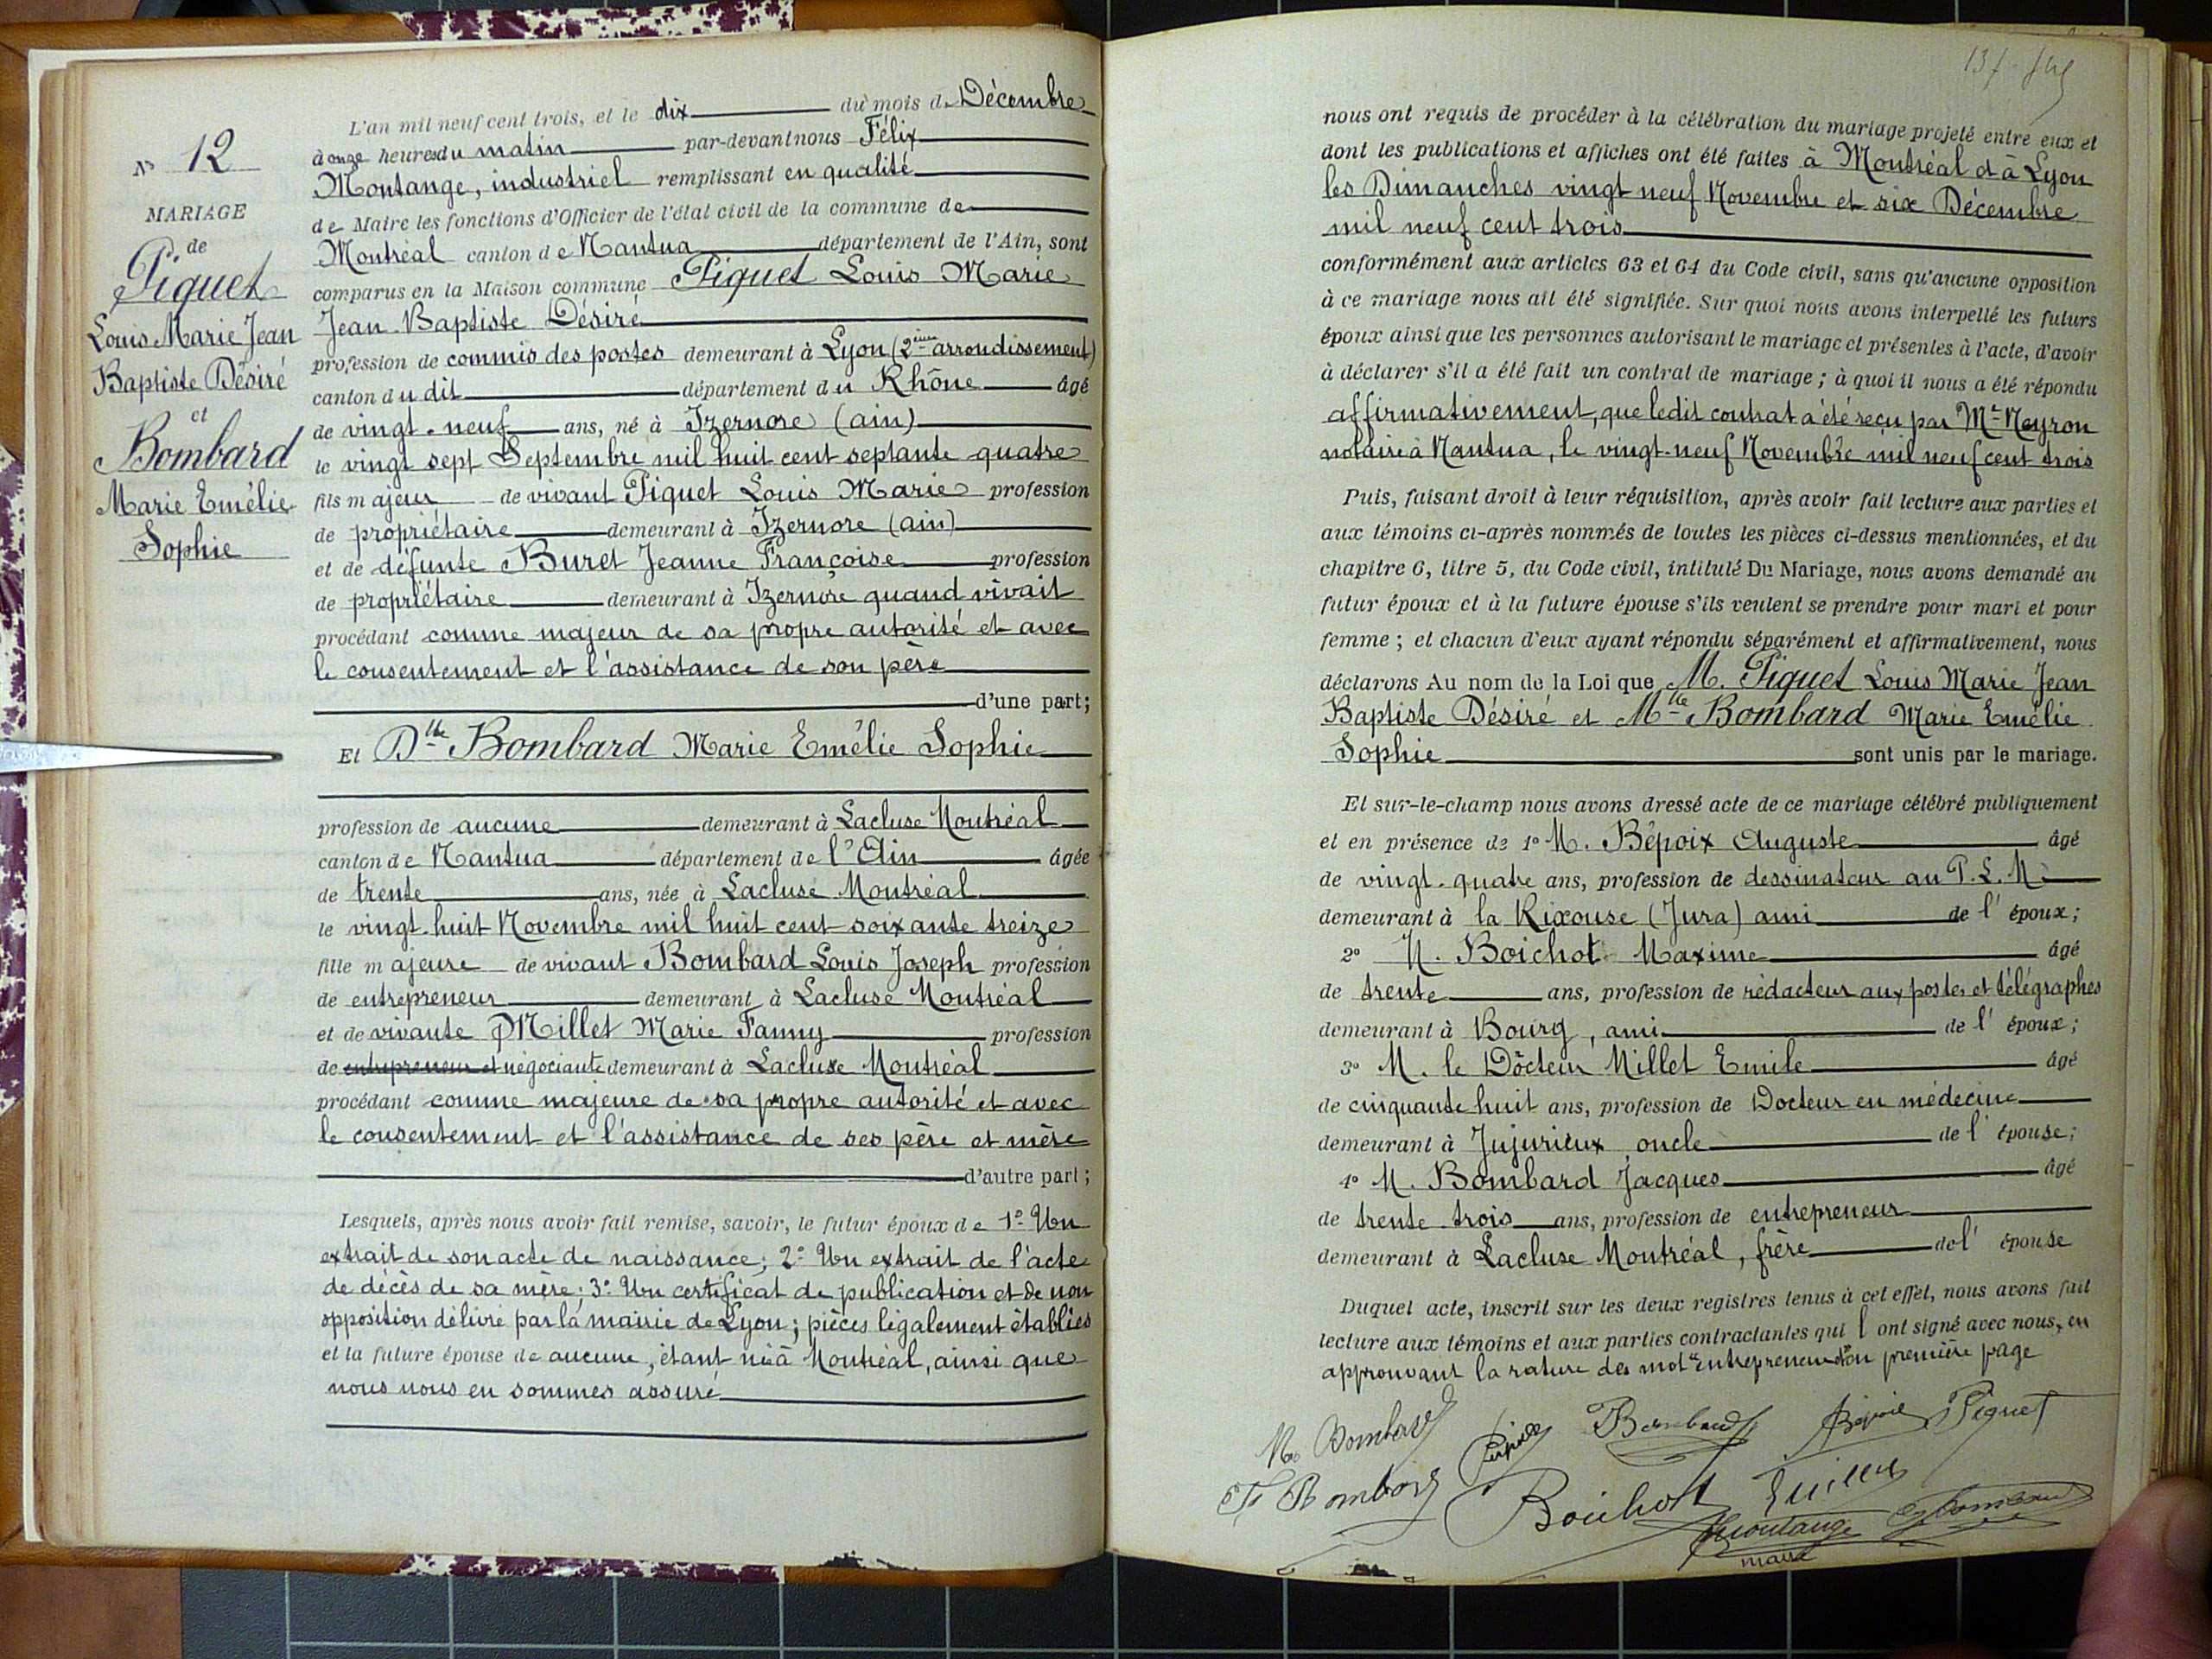 N° 12
MARIAGE
de
Piguet
Louis Marie Jean
Baptiste Désiré
et
Bombard
Marie Emélie
Sophie
L'an mil neuf cent trois, et le dix du mois de Décembre
à onze heures du matin par-devant nous Félix
Montange, industriel remplissant en qualité
de Maire les fonctions d'Officier de l'état civil de la commune de
Montréal canton de Nantua département de l'Ain, sont
comparus en la Maison commune Piguet Louis Marie
Jean Baptiste Désiré
profession de commis des postes demeurant à Lyon (2ème arrondissement)
canton du dit département du Rhône âgé
de vingt-neuf ans, né à Izernore (ain)
le vingt sept Septembre mil huit cent septante quatre
fils majeur de vivant Piguet Louis Marie profession
de propriétaire demeurant à Izernore (ain)
et de défunte Buret Jeanne Françoise profession
de propriétaire demeurant à Izernore quand vivait
procédant comme majeur de sa propre autorité et avec
le consentement et l'assistance de son père
d'une part;
Et Dlle Bombard Marie Emélie Sophie
profession de aucune demeurant à Lacluse Montréal
canton de Nantua département de l'Ain âgée
de trente ans, née à Lacluse Montréal
le vingt-huit Novembre mil huit cent soixante treize
fille majeure de vivant Bombard Louis Joseph profession
de entrepreneur demeurant à Lacluse Montréal
et de vivante Millet Marie Fanny profession
de entrepreneur et négociante demeurant à Lacluse Montréal
procédant comme majeure de sa propre autorité et avec
le consentement et l'assistance de ses père et mère
d'autre part;
Lesquels, après nous avoir fait remise, savoir, le futur époux de 1° Un
extrait de son acte de naissance; 2° Un extrait de l'acte
de décès de sa mère; 3° Un certificat de publication et de non
opposition délivré par la mairie de Lyon; pièces légalement établies
et la future épouse de aucune, étant née à Montréal, ainsi que
nous nous en sommes assuré
nous ont requis de procéder à la célébration du mariage projeté entre eux et
dont les publications et affiches ont été faites à Montréal et à Lyon
les Dimanches vingt neuf Novembre et six Décembre
mil neuf cent trois
conformément aux articles 63 et 64 du Code civil, sans qu'aucune opposition
à ce mariage nous ait été signifiée. Sur quoi nous avons interpellé les futurs
époux ainsi que les personnes autorisant le mariage et présentes à l'acte, d'avoir
à déclarer s'il a été fait un contrat de mariage; à quoi il nous a été répondu
affirmativement, que ledit contrat a été reçu par Me Neyron
notaire à Nantua, le vingt-neuf Novembre mil neuf cent trois
Puis, faisant droit à leur réquisition, après avoir fait lecture aux parties et
aux témoins ci-après nommés de toutes les pièces ci-dessus mentionnées, et du
chapitre 6, titre 5, du Code civil, intitulé Du Mariage, nous avons demandé au
futur époux et à la future épouse s'ils veulent se prendre pour mari et pour
femme; et chacun d'eux ayant répondu séparément et affirmativement, nous
déclarons Au nom de la Loi que M. Piguet Louis Marie Jean
Baptiste Désiré et Mlle Bombard Marie Emélie
Sophie sont unis par le mariage.
Et sur-le-champ nous avons dressé acte de ce mariage célébré publiquement
et en présence de 1° M. Bépoix Auguste âgé
de vingt-quatre ans, profession de dessinateur au P.L.M.
demeurant à la Rixouse (Jura) ami de l'époux;
2° M. Boichot Maxime âgé
de trente ans, profession de rédacteur aux postes et télégraphes
demeurant à Bourg, ami de l'époux;
3° M. le Docteur Millet Emile âgé
de cinquante huit ans, profession de Docteur en médecine
demeurant à Jujurieux oncle de l'épouse;
4° M. Bombard Jacques âgé
de trente-trois ans, profession de entrepreneur
demeurant à Lacluse Montréal, frère de l'épouse
Duquel acte, inscrit sur les deux registres tenus à cet effet, nous avons fait
lecture aux témoins et aux parties contractantes qui l'ont signé avec nous, en
approuvant la rature des mot "Entrepreneur et" en première page
Bombard Bombard Bépoix Piguet
Bombard Boichot
Montange
maire